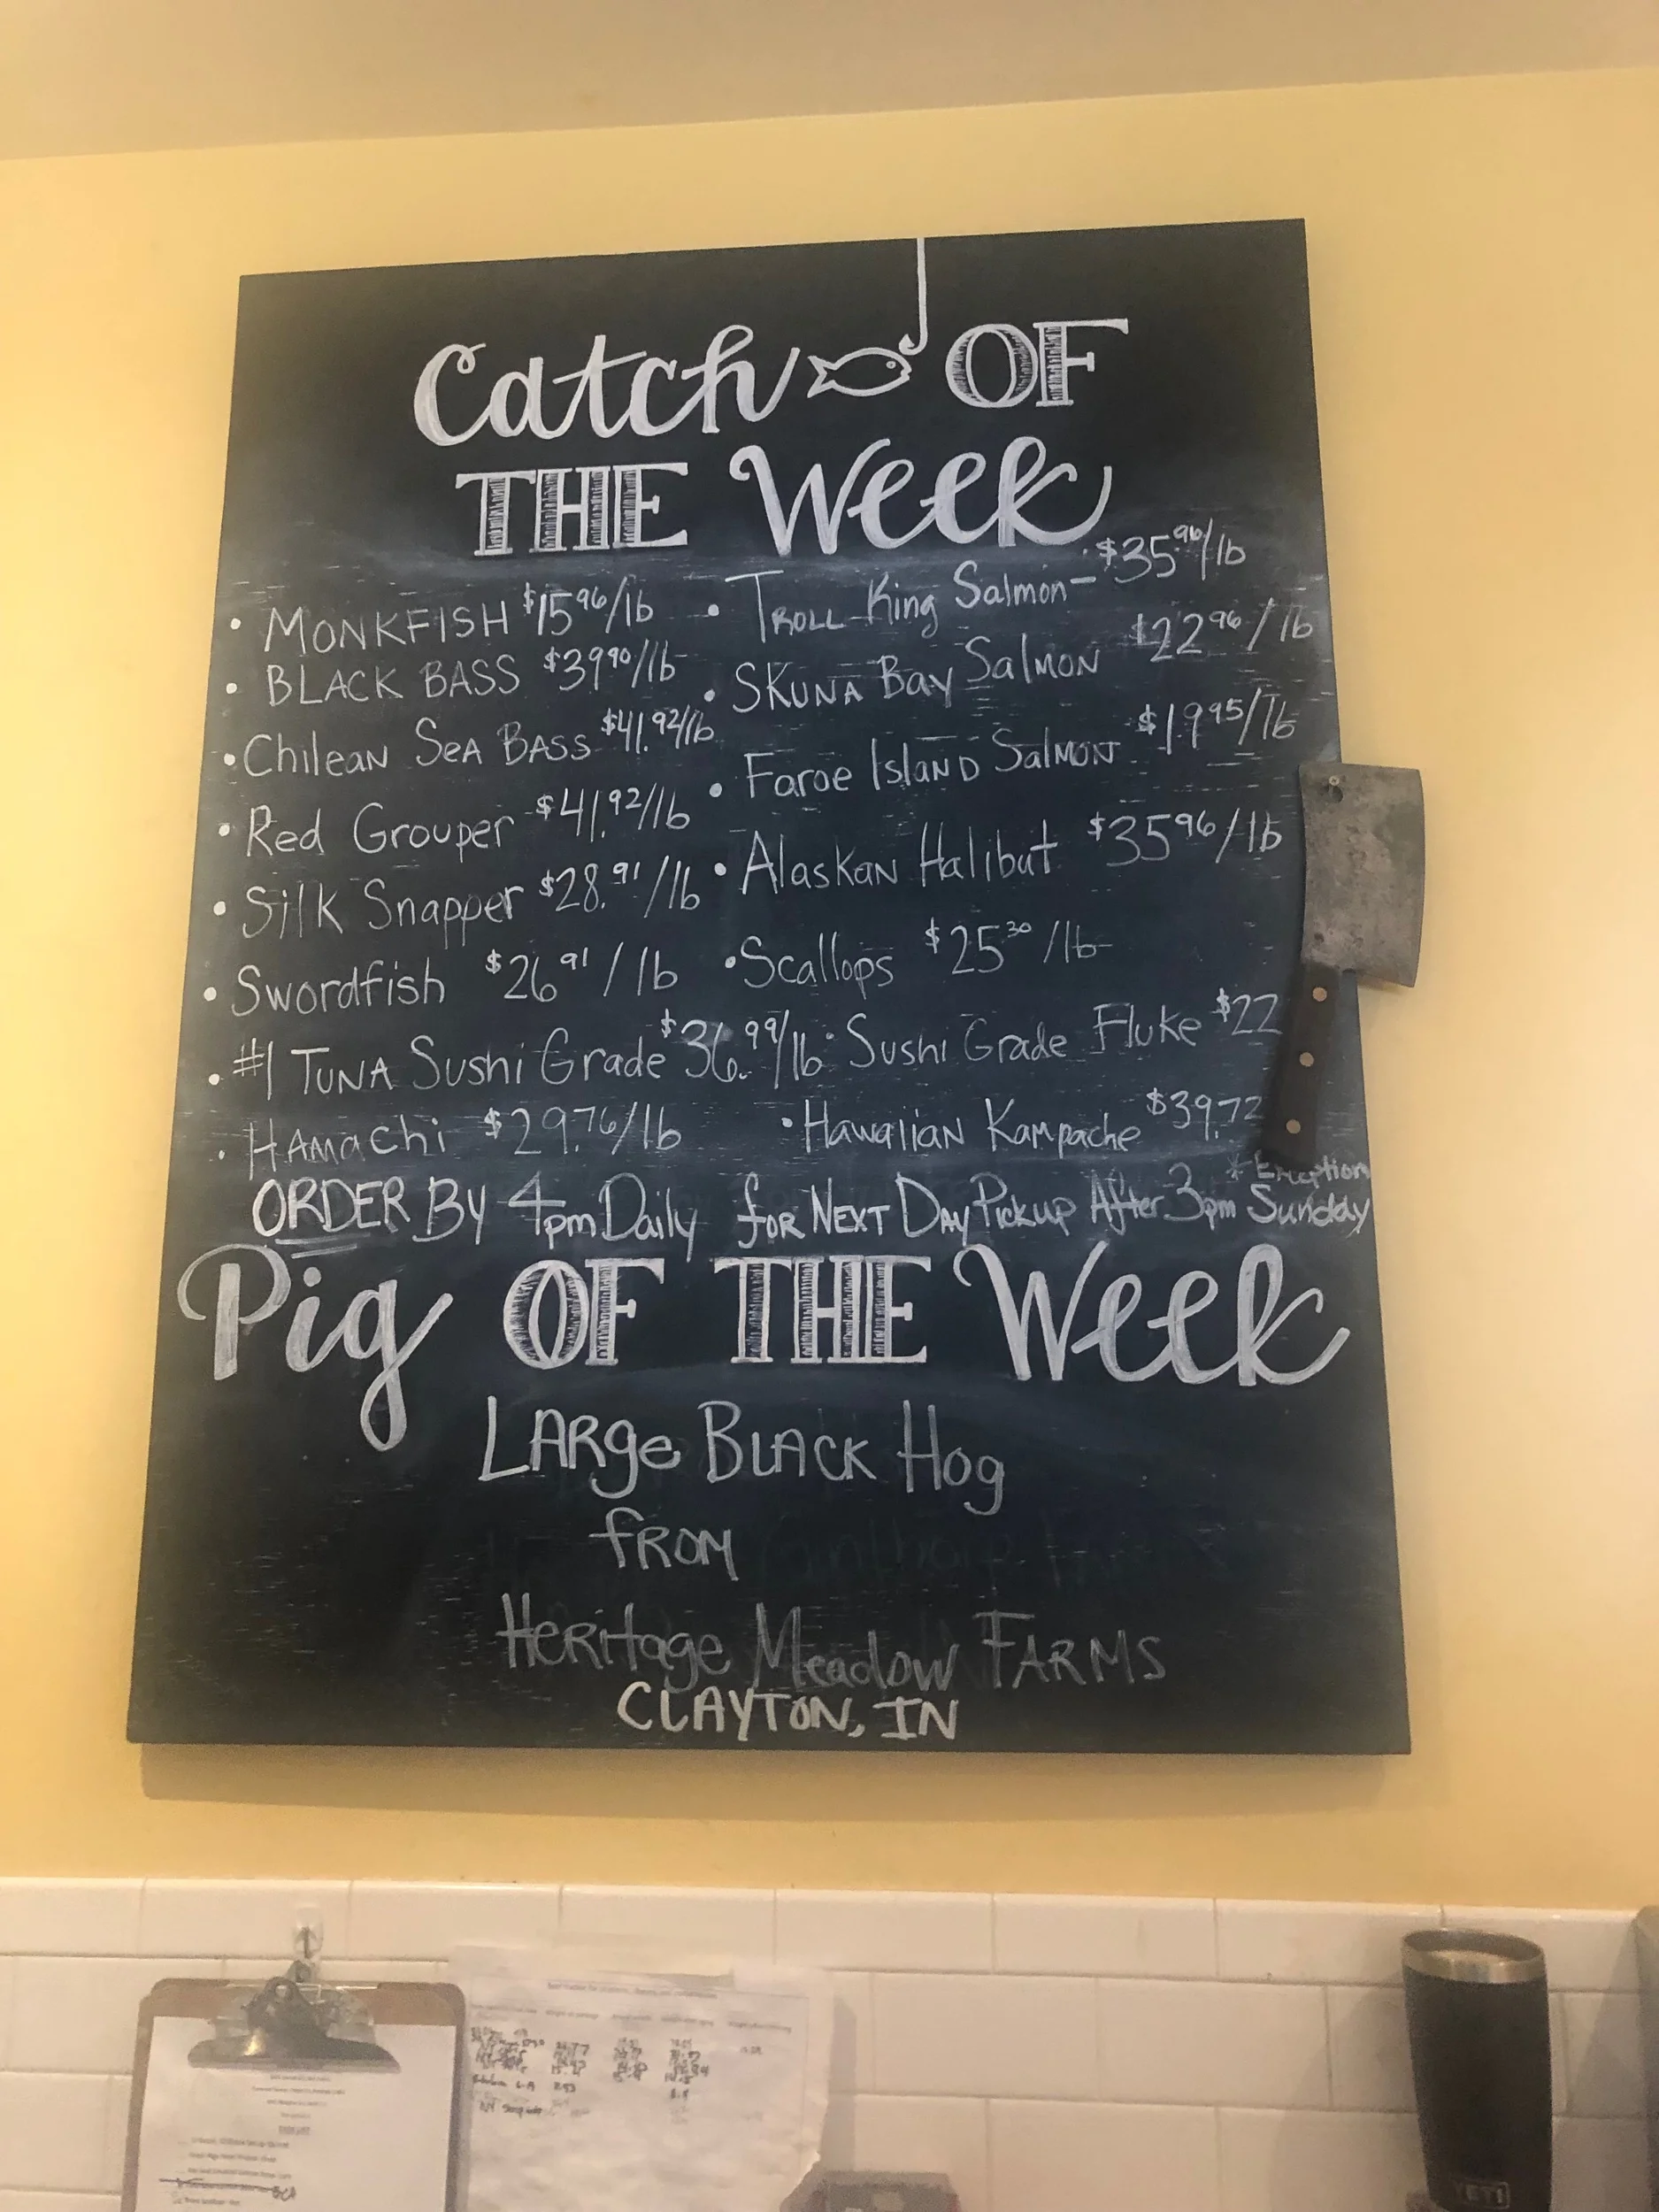 Catch OF
THE Week
• MONKFISH $15.96/lb
• BLACK BASS $39.90/lb
• Chilean Sea Bass $41.92/lb
• Red Grouper $41.92/lb
• Silk Snapper $28.91/lb
• Swordfish $26.91/lb
• #1 Tuna Sushi Grade $36.99/lb
• Hamachi $29.76/lb
• Troll King Salmon - $35.96/lb
• Skuna Bay Salmon $22.96/lb
• Faroe Island Salmon $19.95/lb
• Alaskan Halibut $35.96/lb
• Scallops $25.30/lb
• Sushi Grade Fluke $22
• Hawaiian Kampache $39.72
* Exception
ORDER By 4pm Daily for Next Day Pickup After 3pm Sunday
Pig OF THE Week
Large Black Hog
from
Heritage Meadow Farms
CLAYTON, IN
YETI